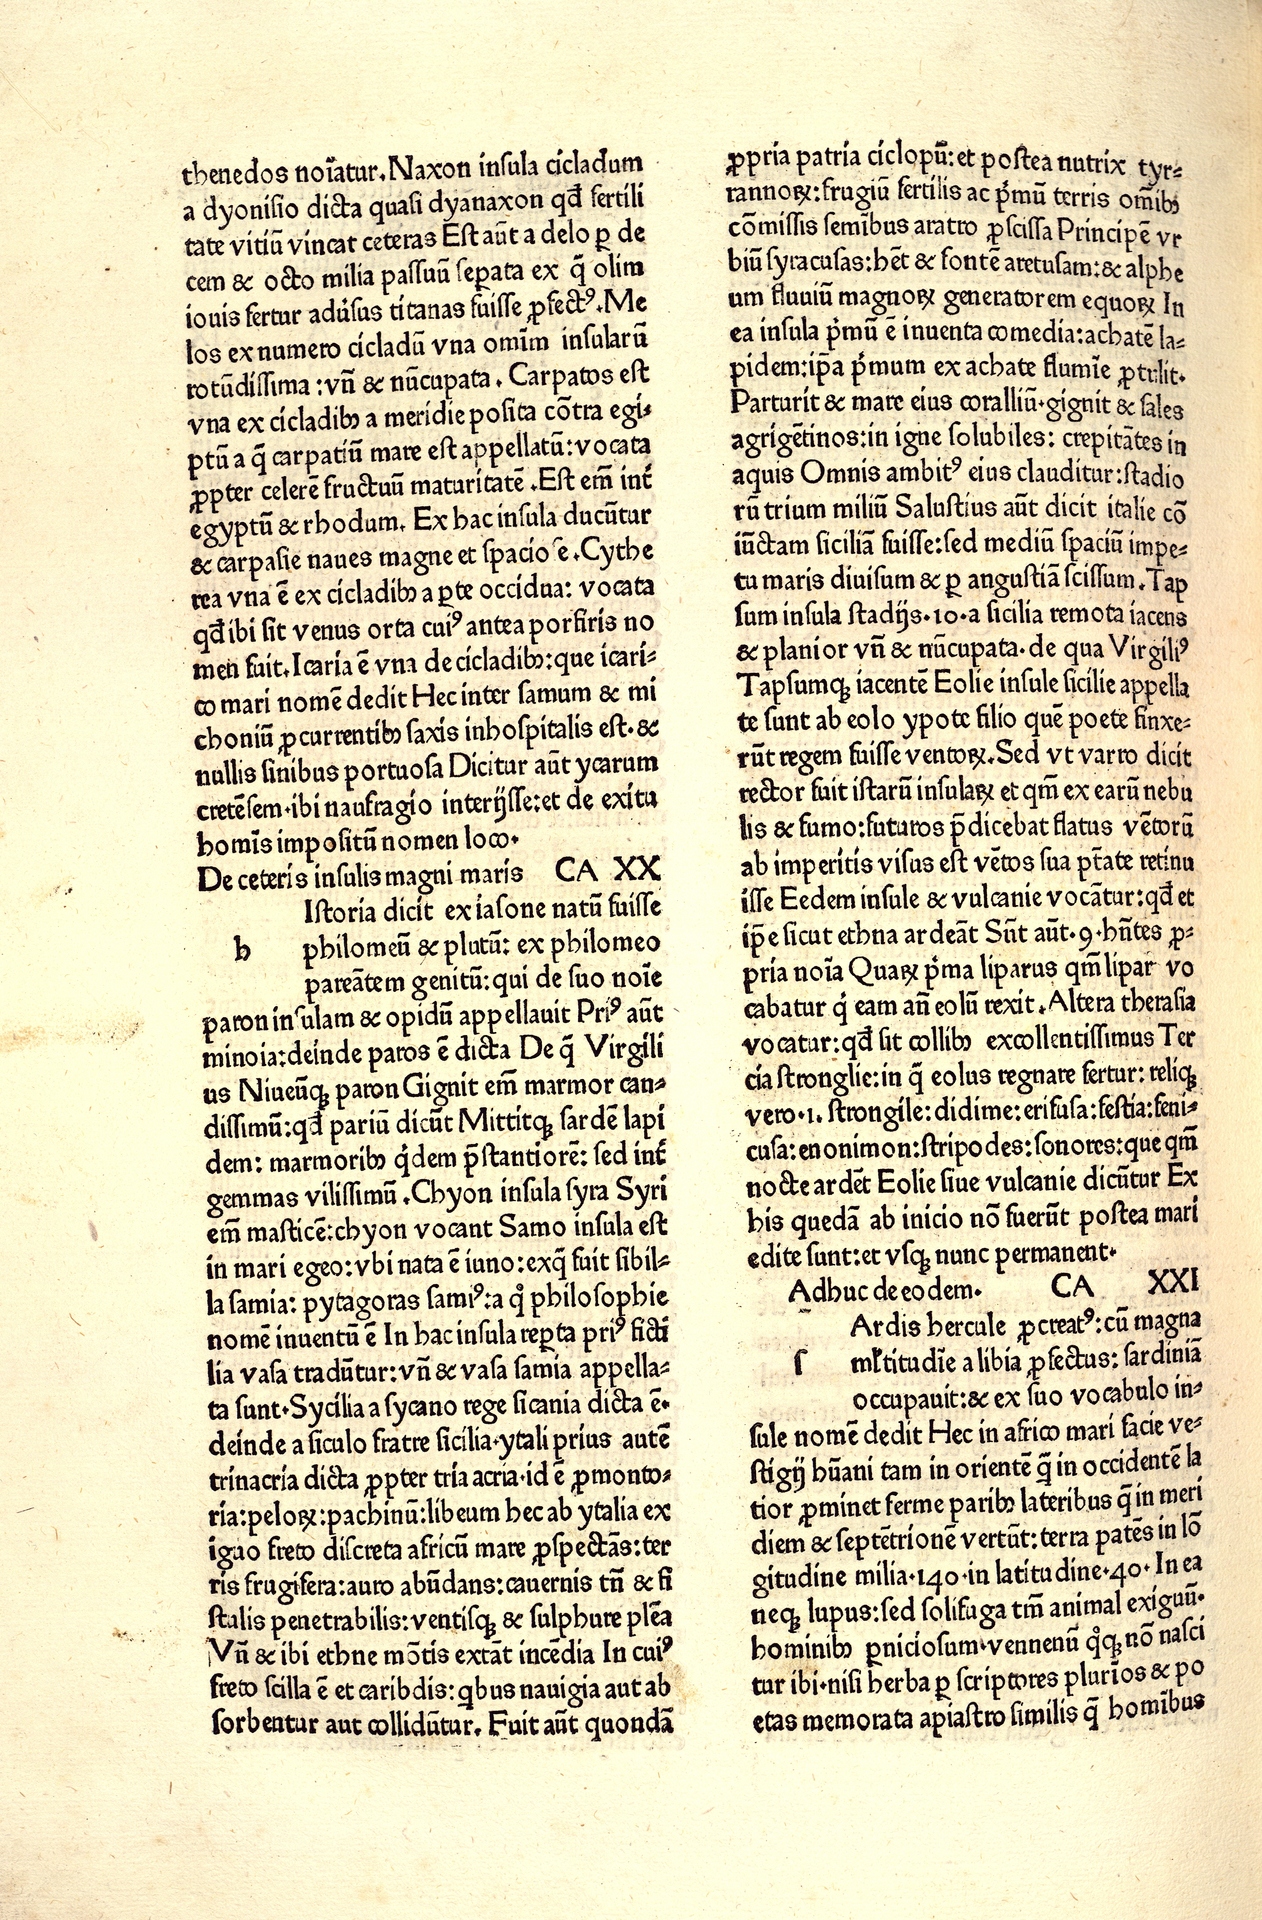 thenedos noīatur. Naxon insula cicladum
a dyonisio dicta quasi dyanaxon qđ fertili
tate vitiū vincat ceteras Est aūt a delo ꝑ de
cem & octo milia passuū seꝑata ex q̄ olim
iouis fertur adūsus titanas fuisse ꝓfectꝰ. Me
los ex numero cicladū vna omīm insularū
rotūdissima : vñ & nūcupata. Carpatos est
vna ex cicladibꝫ a meridie posita cōtra egi-
ptū a q̄ carpatiū mare est appellatū: vocata
ꝓpter celerē fructuū maturitatē. Est em̄ int̄
egyptū & rhodum. Ex hac insula ducūtur
& carpasie naues magne et spaciose. Cythe
rea vna ē ex cicladibꝫ a ꝑte occidua: vocata
qđ ibi sit venus orta cuiꝰ antea porfiris no
men fuit. Icaria ē vna de cicladibꝫ: que icari-
co mari nomē dedit Hec inter samum & mi
choniū ꝓcurrentibꝫ saxis inhospitalis est. &
nullis sinibus portuosa Dicitur aūt ycarum
cretēsem. ibi naufragio interijsse: et de exitu
homīs impositū nomen loco.
De ceteris insulis magni maris CA XX
Istoria dicit ex iasone natū fuisse
h philomeū & plutū: ex philomeo
pareātem genitū: qui de suo noīe
paron insulam & opidū appellauit Priꝰ aūt
minoia: deinde paros ē dicta De q̄ Virgili
us Niueūqꝫ paron Gignit em̄ marmor can-
dissimū: qđ pariū dicūt Mittitqꝫ sardē lapi
dem: marmoribꝫ q̇dem p̄stantiorē: sed int̄
gemmas vilissimū. Chyon insula syra Syri
em̄ masticē: chyon vocant Samo insula est
in mari egeo: vbi nata ē iuno: ex q̄ fuit sibil-
la samia: pytagoras samiꝰ: a q̊ philosophie
nomē inuentū ē In hac insula reꝑta priꝰ ficti
lia vasa tradūtur: vñ & vasa samia appella-
ta sunt. Sycilia a sycano rege sicania dicta ē.
deinde a siculo fratre sicilia. ytali prius autē
trinacria dicta ꝓpter tria acria. id ē ꝓmonto-
ria: peloꝝ: pachinū: libeum hec ab ytalia ex
iguo freto discreta africū mare ꝓspectās: ter
ris frugifera: auro abūdans: cauernis tñ & fi
stulis penetrabilis: ventisqꝫ & sulphure plēa
Vñ & ibi ethne mōtis extāt incēdia In cuiꝰ
freto scilla ē et caribdis: q̇bus nauigia aut ab
sorbentur aut collidūtur. Fuit aūt quondā
ꝓpria patria ciclopū: et postea nutrix tyr-
rannoꝝ: frugiū fertilis ac ṗmū terris om̄ibꝫ
cōmissis semībus aratro ꝓscissa Principē vr
biū syracusas: hēt & fontē aretusam: & alphe
um fluuiū magnoꝝ generatorem equoꝝ In
ea insula ṗmū ē inuenta comedia: achatē la-
pidem: ip̄a ṗmum ex achate flumīe ꝓtulit.
Parturit & mare eius coralliū. gignit & sales
agrigētinos: in igne solubiles: crepitātes in
aquis Omnis ambitꝰ eius clauditur: stadio
rū trium miliū Salustius aūt dicit italie cō
iūctam siciliā fuisse: sed mediū spaciū impe-
tu maris diuisum & ꝑ angustiā scissum. Tap
sum insula stadijs. 10. a sicilia remota iacens
& planior vñ & nūcupata. de qua Virgiliꝰ
Tapsumqꝫ iacentē Eolie insule sicilie appella
te sunt ab eolo ypote filio quē poete finxe-
rūt regem fuisse ventoꝝ. Sed vt varro dicit
rector fuit istarū insulaꝝ et qm̄ ex earū nebu
lis & fumo: futuros p̄dicebat flatus vētorū
ab imperitis visus est vētos sua ptāte retinu
isse Eedem insule & vulcanie vocātur: qđ et
ip̄e sicut ethna ardeāt Sūt aūt. 9. hn̄tes ꝓ-
pria noīa Quaꝝ ṗma liparus qm̄ lipar vo
cabatur q̇ eam añ eolū rexit. Altera therasia
vocatur: qđ sit collibꝫ excollentissimus Ter
cia stronglie: in q̄ eolus regnare fertur: reliqꝫ
vero. 1. strongile: didime: erifusa: festia: feni-
cusa: enonimon: stripodes: sonores: que qm̄
nocte ardēt Eolie siue vulcanie dicūtur Ex
his quedā ab inicio nō fuerūt postea mari
edite sunt: et vsqꝫ nunc permanent.
Adhuc de eodem. CA XXI
Ardis hercule ꝓcreatꝰ: cū magna
s ml̄titudīe a libia ꝓfectus: sardiniā
occupauit: & ex suo vocabulo in-
sule nomē dedit Hec in africo mari facie ve-
stigij hūani tam in orientē q̄ in occidentē la
tior ꝓminet ferme paribꝫ lateribus q̄ in meri
diem & septētrionē vertūt: terra patēs in lō
gitudine milia. 140. in latitudine. 40. In ea
neqꝫ lupus: sed solifuga tm̄ animal exiguū.
hominibꝫ ꝑniciosum. vennenū q̊qꝫ nō nasci
tur ibi. nisi herba ꝑ scriptores plurīos & po
etas memorata apiastro similis q̄ homībus